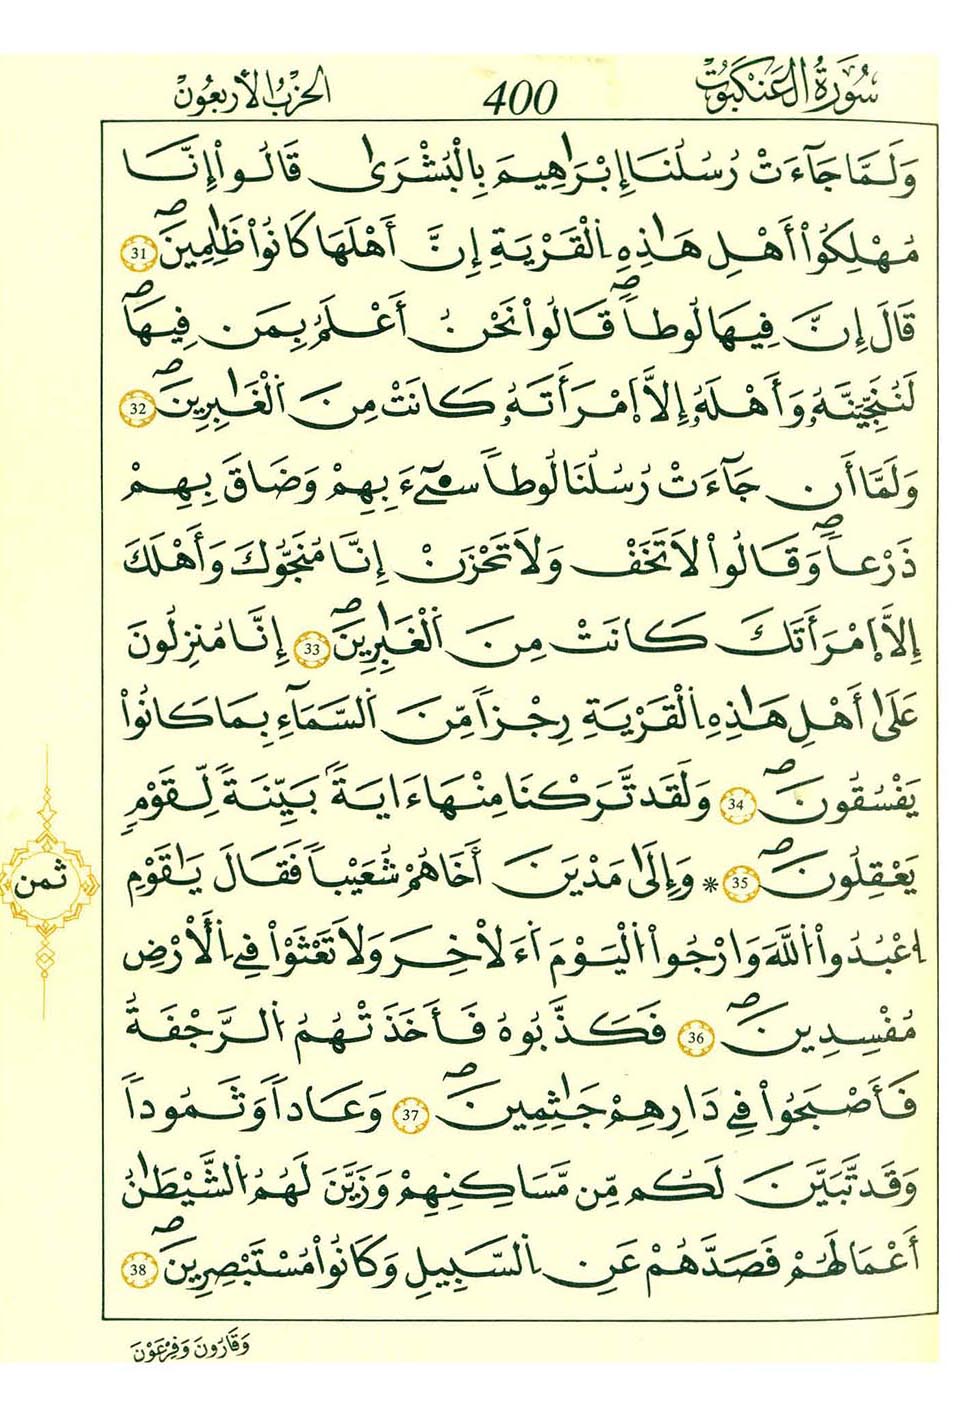 سُورَةُ الْعَنكَبُوتِ 400 الحِزْبُ الأَرْبَعُونَ
وَلَمَّا جَآءَتْ رُسُلُنَا إِبْرَٰهِيمَ بِالْبُشْرَىٰ قَالُواْ إِنَّا
مُهْلِكُواْ أَهْلِ هَٰذِهِ اِلْقَرْيَةِ إِنَّ أَهْلَهَا كَانُواْ ظَٰلِمِينَۖ 31
قَالَ إِنَّ فِيهَا لُوطاٗۖ قَالُواْ نَحْنُ أَعْلَمُ بِمَن فِيهَاۖ
لَنُنَجِّيَنَّهُۥ وَأَهْلَهُۥٓ إِلَّا اَمْرَأَتَهُۥ كَانَتْ مِنَ اَلْغَٰبِرِينَۖ 32
وَلَمَّا أَن جَآءَتْ رُسُلُنَا لُوطاٗ سِےٓءَ بِهِمْ وَضَاقَ بِهِمْ
ذَرْعاٗۖ وَقَالُواْ لَا تَخَفْ وَلَا تَحْزَنْ إِنَّا مُنَجُّوكَ وَأَهْلَكَ
إِلَّا اَمْرَأَتَكَ كَانَتْ مِنَ اَلْغَٰبِرِينَۖ 33 إِنَّا مُنزِلُونَ
عَلَىٰ أَهْلِ هَٰذِهِ اِلْقَرْيَةِ رِجْزاٗ مِّنَ اَلسَّمَآءِ بِمَا كَانُواْ
يَفْسُقُونَۖ 34 وَلَقَد تَّرَكْنَا مِنْهَا ءَايَةَۢ بَيِّنَةٗ لِّقَوْمٖ
يَعْقِلُونَۖ 35 * وَإِلَىٰ مَدْيَنَ أَخَاهُمْ شُعَيْباٗ فَقَالَ يَٰقَوْمِ
ثمن
اِ۟عْبُدُواْ اُللَّهَ وَارْجُواْ اُلْيَوْمَ اَءَلْأخِرَ وَلَا تَعْثَوْاْ فِے اِلْأَرْضِ
مُفْسِدِينَۖ 36 فَكَذَّبُوهُ فَأَخَذَتْهُمُ اُلرَّجْفَةُ
فَأَصْبَحُواْ فِے دَارِهِمْ جَٰثِمِينَۖ 37 وَعَاداٗ وَثَمُوداٗ
وَقَد تَّبَيَّنَ لَكُم مِّن مَّسَاكِنِهِمْ وَزَيَّنَ لَهُمُ اُلشَّيْطَٰنُ
أَعْمَالَهُمْ فَصَدَّهُمْ عَنِ اِلسَّبِيلِ وَكَانُواْ مُسْتَبْصِرِينَۖ 38
وَقَارُونَ وَفِرْعَوْنَ